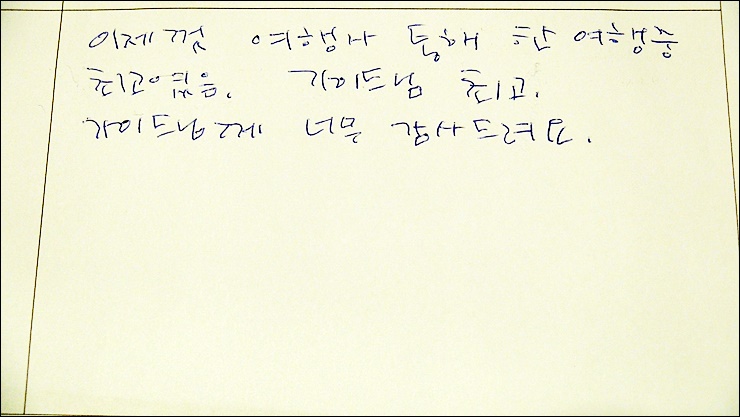 이제껏 여행사 통해 한 여행중
최고였음. 가이드님 최고.
가이드님께 너무 감사드려요.